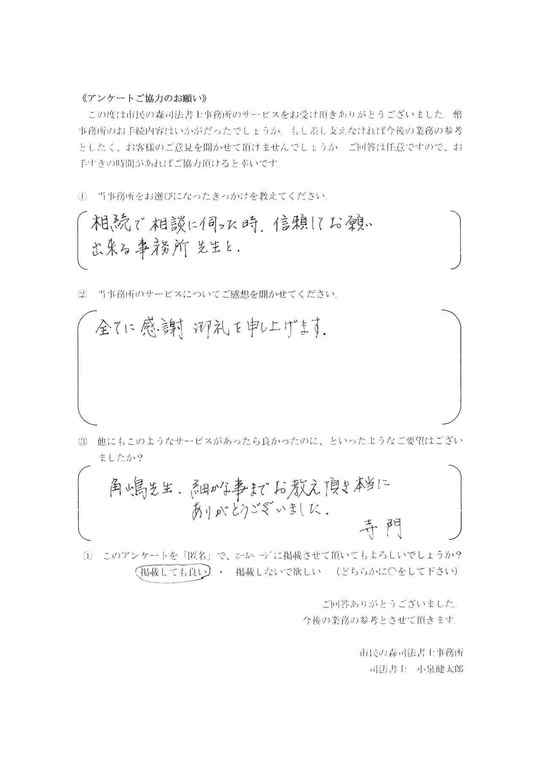 《アンケートご協力のお願い》
この度は市民の森司法書士事務所のサービスをお受け頂きありがとうございました。弊
事務所のお手続内容はいかがだったでしょうか。もし差し支えなければ今後の業務の参考
としたく、お客様のご意見を聞かせて頂けませんでしょうか。ご回答は任意ですので、お
手すきの時間があればご協力頂けると幸いです。
① 当事務所をお選びになったきっかけを教えてください。
相続で相談に伺った時、信頼してお願い
出来る事務所 先生と、
② 当事務所のサービスについてご感想を聞かせてください。
全てに感謝 御礼を申し上げます。
③ 他にもこのようなサービスがあったら良かったのに、といったようなご要望はござい
ましたか?
角嶋先生、細かな事までお教え頂き本当に
ありがとうございました。
寺門
④ このアンケートを「匿名」で、ホームページに掲載させて頂いてもよろしいでしょうか?
掲載しても良い ・ 掲載しないで欲しい (どちらかに○をして下さい)
ご回答ありがとうございました。
今後の業務の参考とさせて頂きます。
市民の森司法書士事務所
司法書士 小泉健太郎